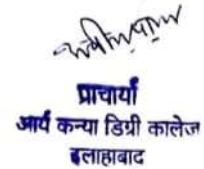 प्राचार्या
आर्य कन्या डिग्री कालेज
इलाहाबाद